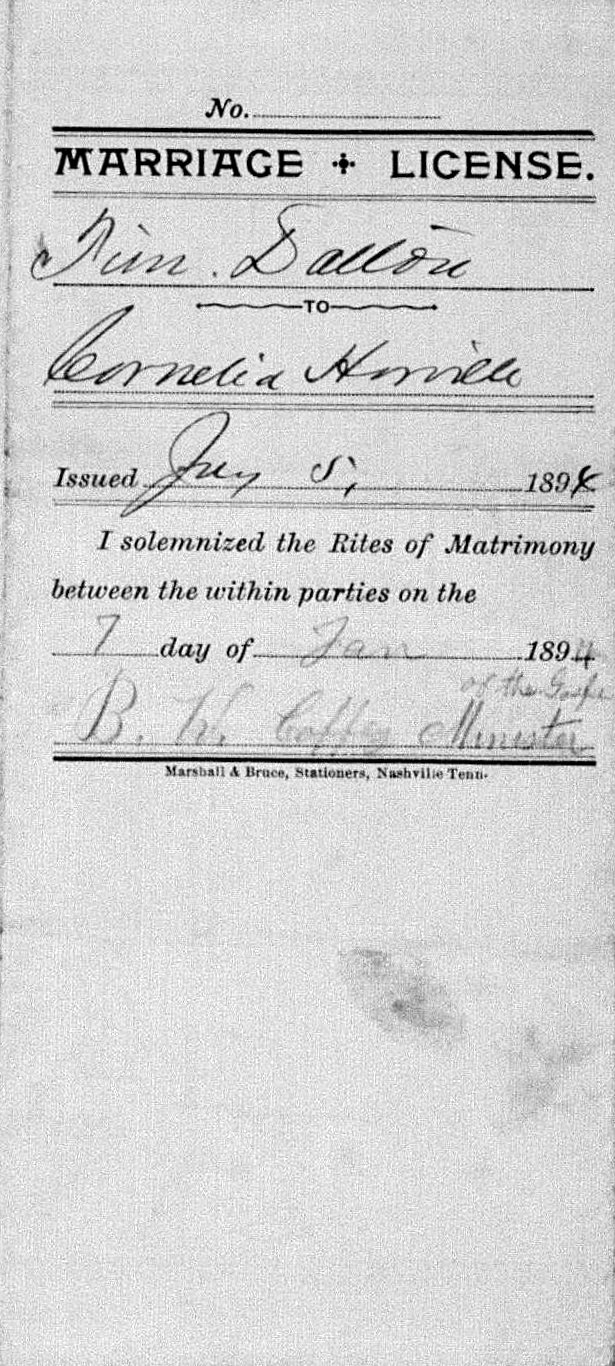 No.
MARRIAGE LICENSE.
Dalton
TO
Cornelia
Issued Jany 5, 1894
I solemnized the Rites of Matrimony
between the within parties on the
7 day of Jan 1894
of the Gospel
B. W. Coffey Minister
Marshall & Bruce, Stationers, Nashville Tenn.